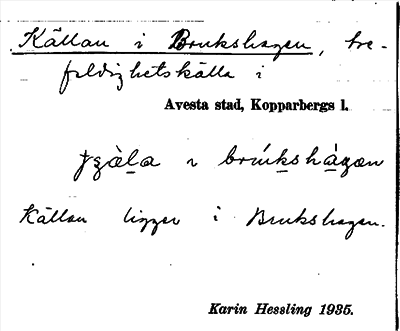 Källan i Brukshagen, tre-
faldighetskälla i
Avesta stad, Kopparbergs l.
i brúkshàgan
Källan ligger i Brukshagen.
Karin Hessling 1935.